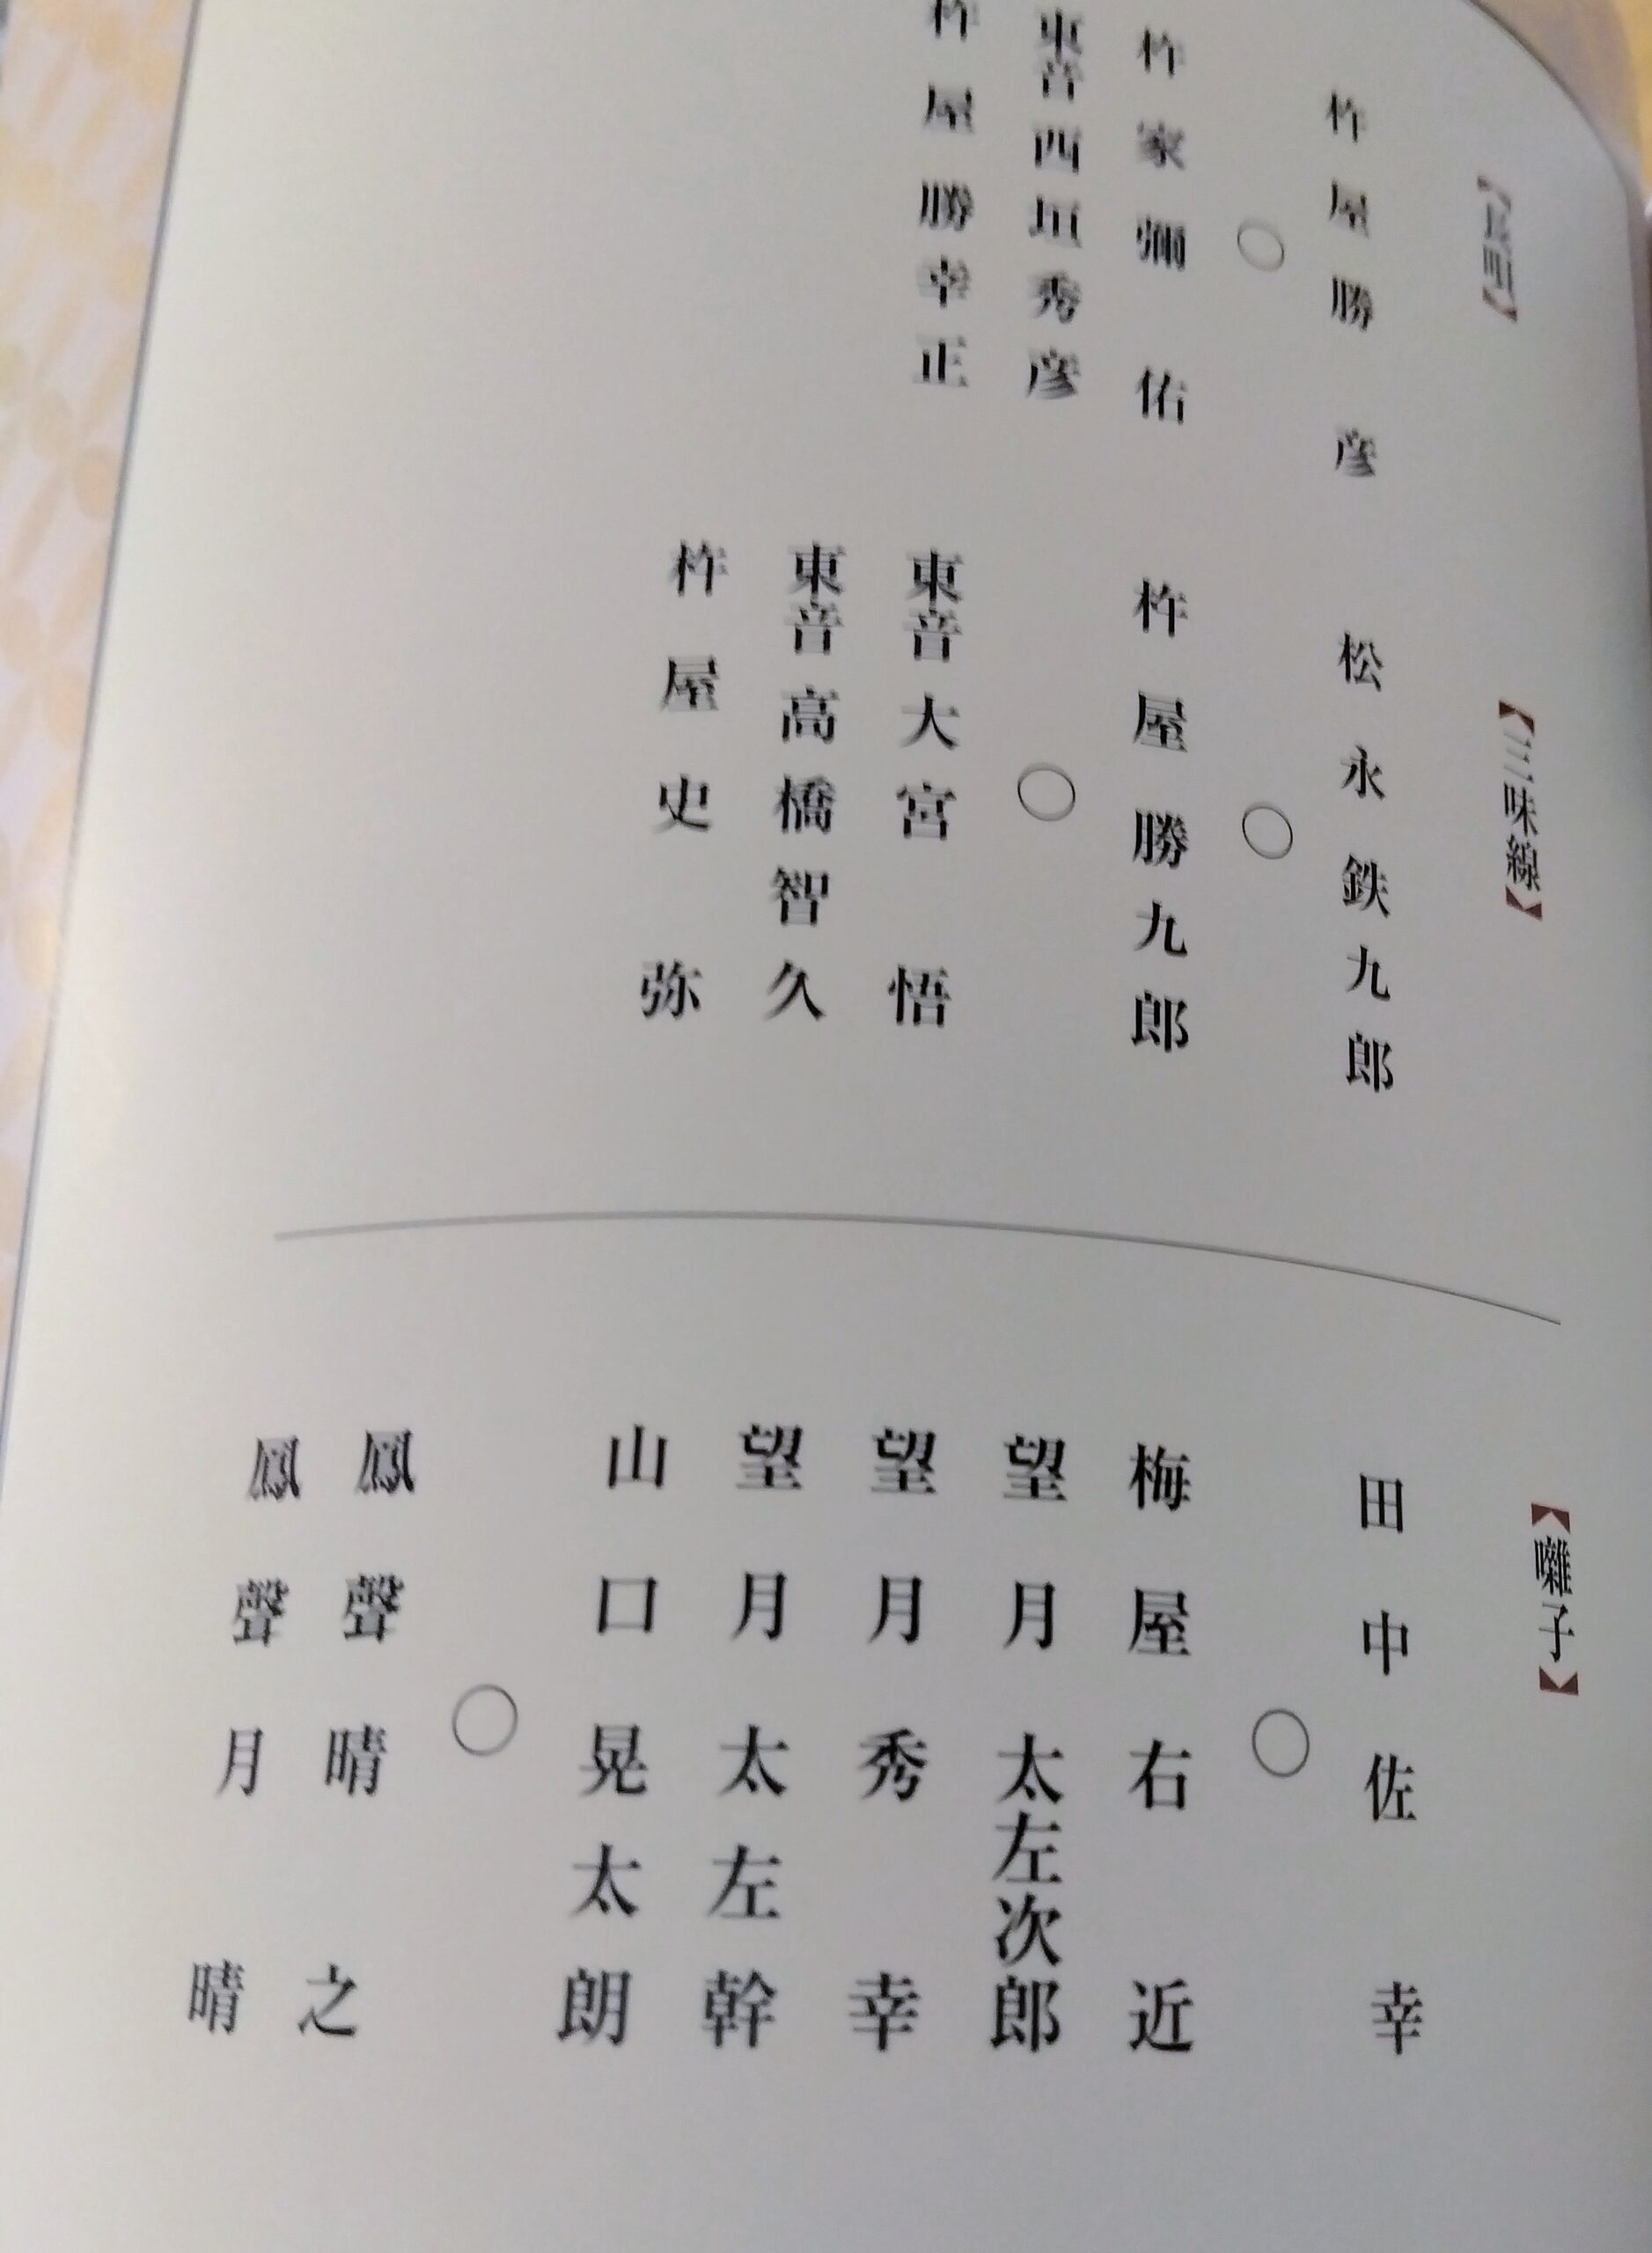 【長唄】
杵屋勝彦
○
杵家彌佑
東音西垣秀彦
杵屋勝幸正
【三味線】
松永鉄九郎
○
杵屋勝九郎
○
東音大宮悟
東音高橋智久
杵屋史弥
【囃子】
田中佐幸
○
梅屋右近
望月太左次郎
望月秀幸
望月太左幹
山口晃太朗
○
鳳聲晴之
鳳聲月晴